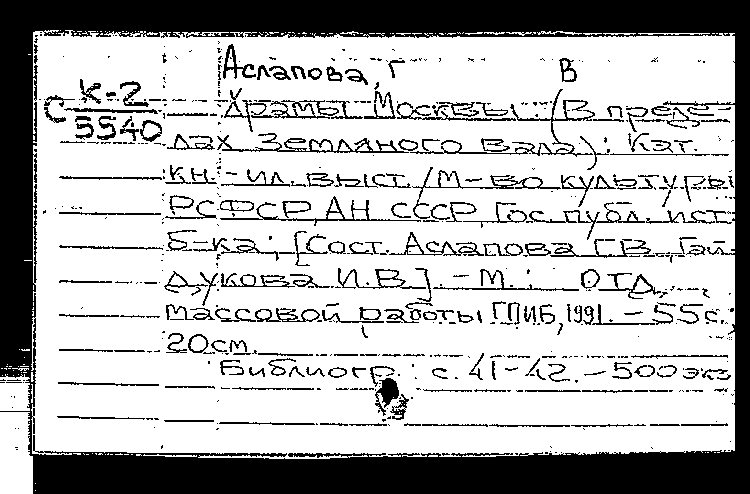 Аслапова, Г В
С К-2
5540
Храмы Москвы: (В преде-
лах Земляного Вала): Кат.
кн.-ил. выст. / М-во культуры
РСФСР, АН СССР, Гос. публ. ист.
б-ка; [Сост. Аслапова Г.В., Гай-
дукова И.В]. - М.: Отд.
массовой работы ГПИБ, 1991. - 55с.;
20см.
Библиогр.: с. 41-42. - 500 экз